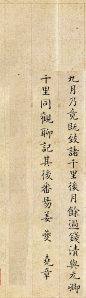 九月乃竟既效諸千里後月餘過錢清與元卿
千里同觀聊記其後番昜姜夔堯章